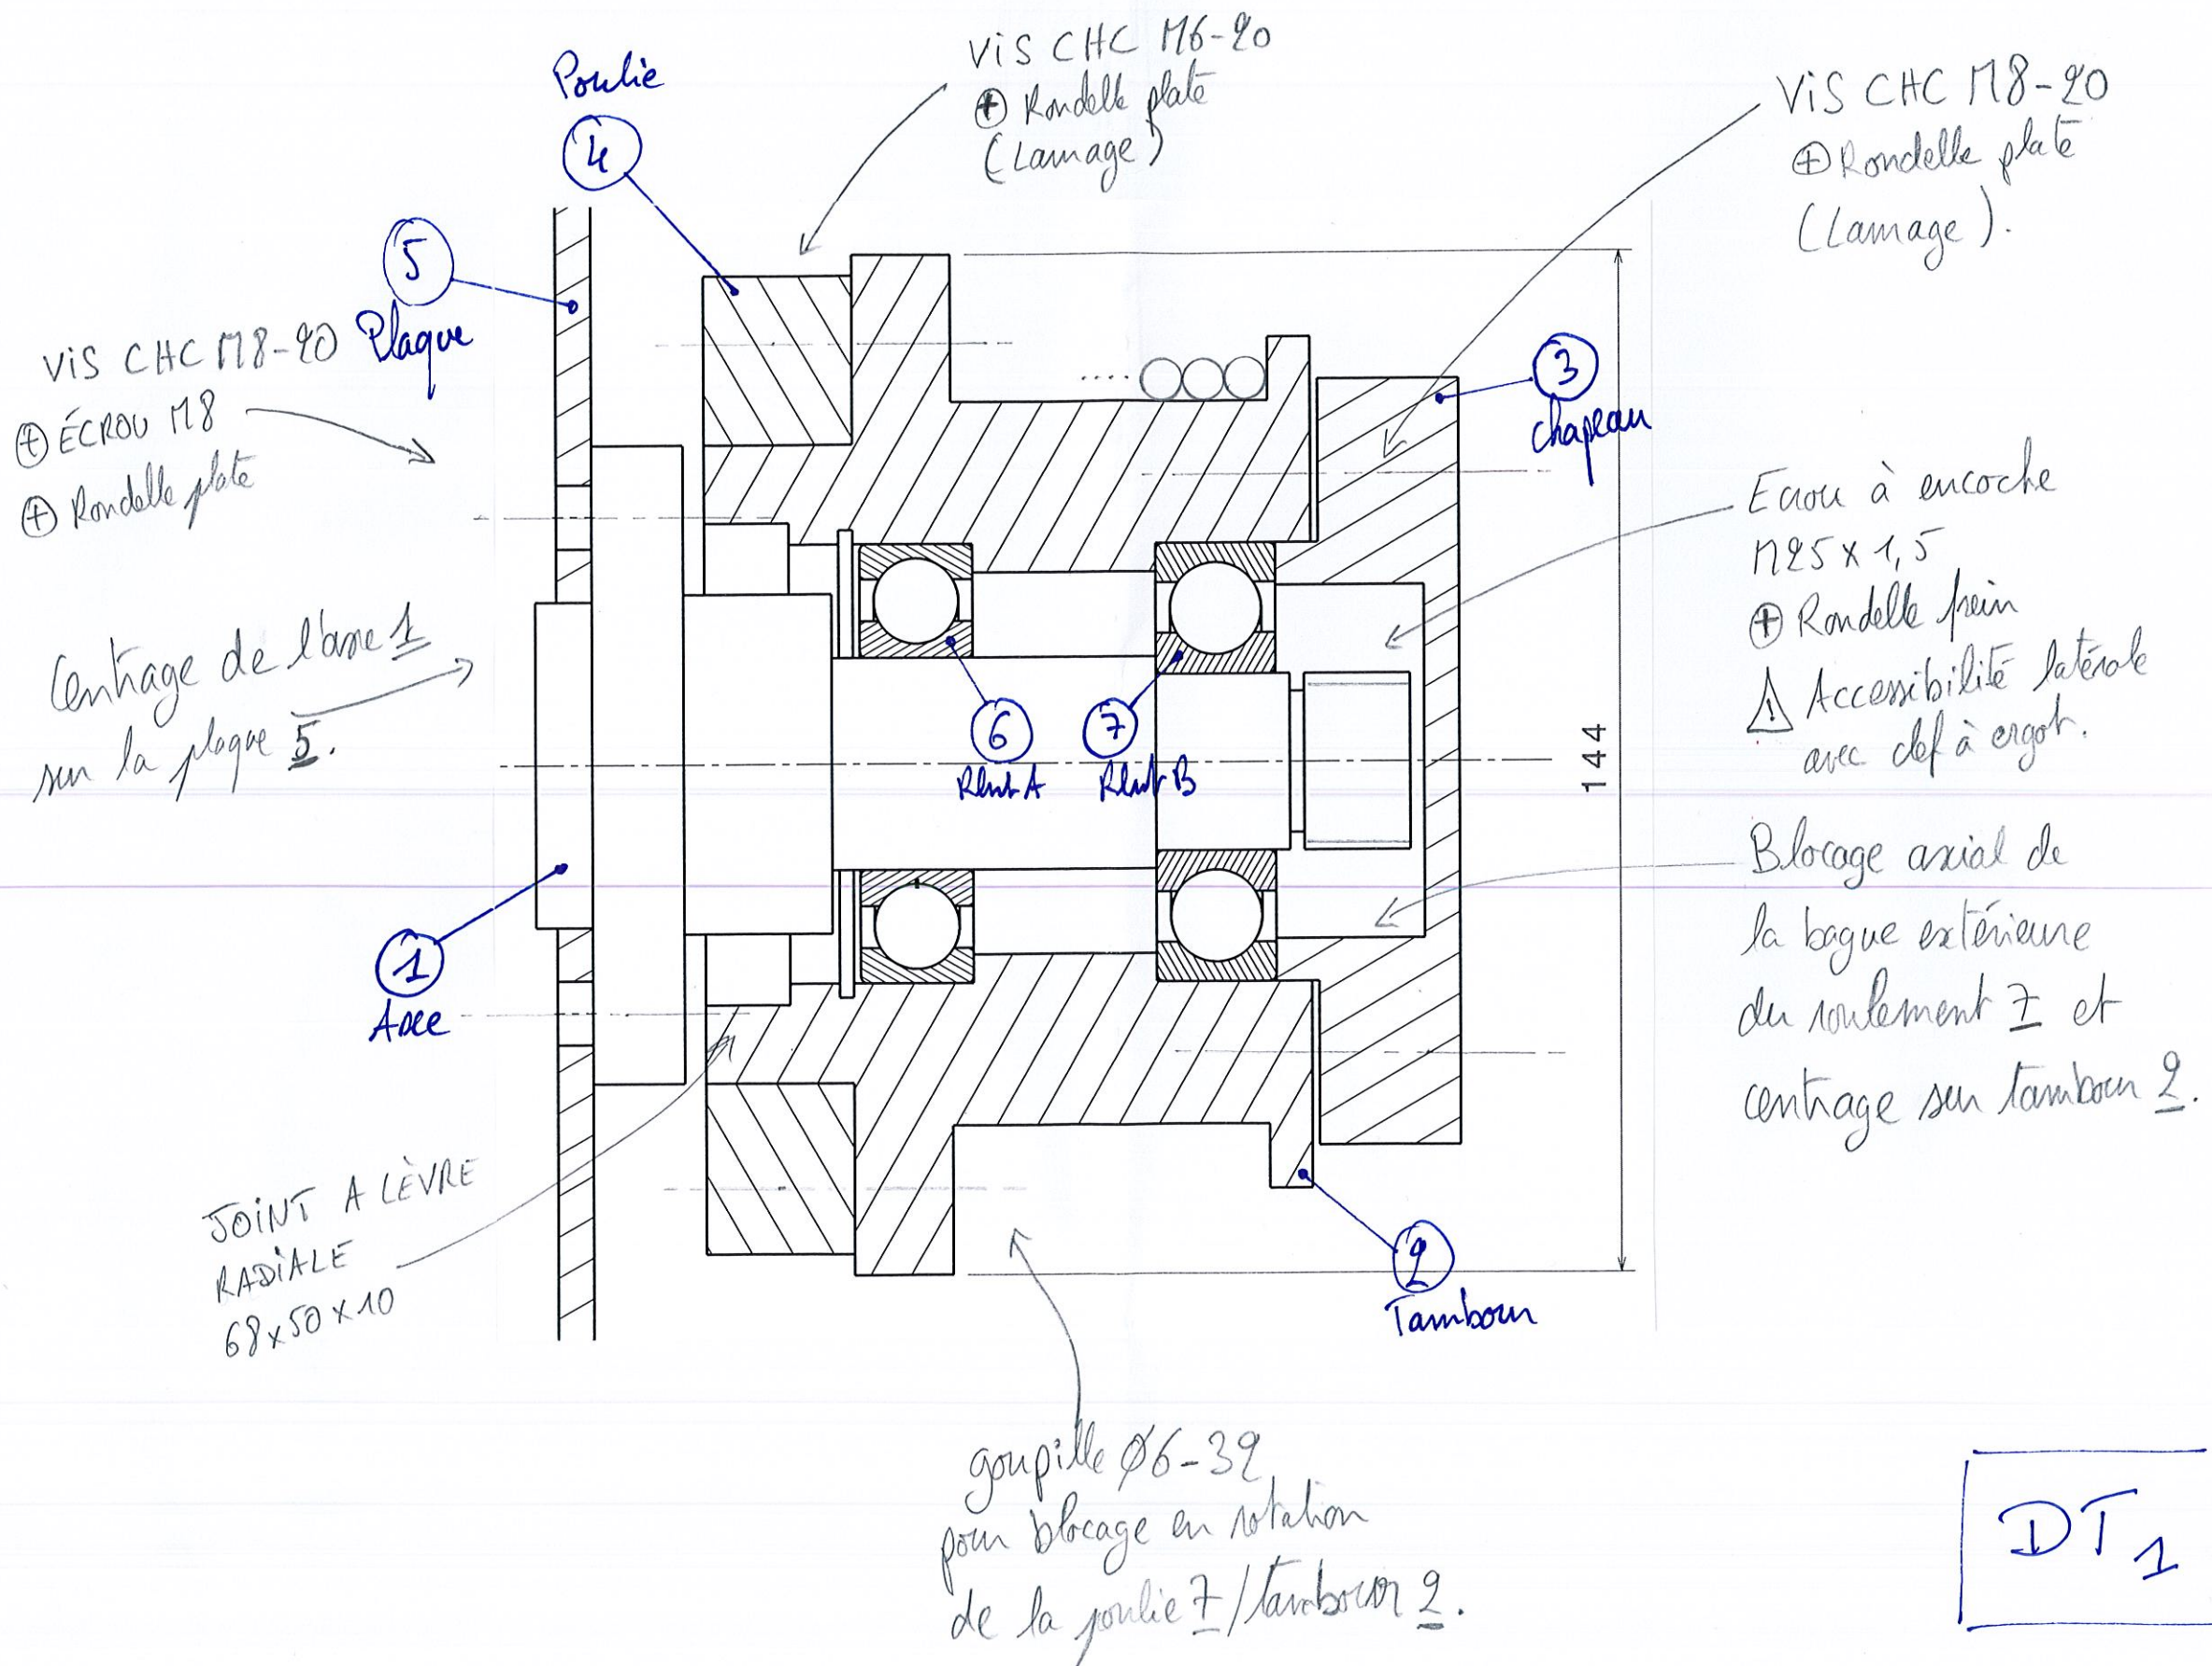 Poulie
4
ViS CHC M6-20
⊕ Rondelle plate
(Lamage)
ViS CHC M8-20
⊕ Rondelle plate
(Lamage).
5
Plaque
ViS CHC M8-20
⊕ ÉCROU M8
⊕ Rondelle plate
3
Chapeau
Ecrou à encoche
M25 x 1,5
⊕ Rondelle frein
⚠ Accessibilité latérale
avec clef à ergot.
Centrage de l'axe 1
sur la plaque 5.
6
Rlmt A
7
Rlmt B
144
Blocage axial de
la bague extérieure
du roulement 7 et
centrage sur tambour 2.
1
Axe
JOiNT A LÈVRE
RADiALE
68x50x10
2
Tambour
goupille Ø6-32
pour blocage en rotation
de la poulie 7/tambour 2.
DT1